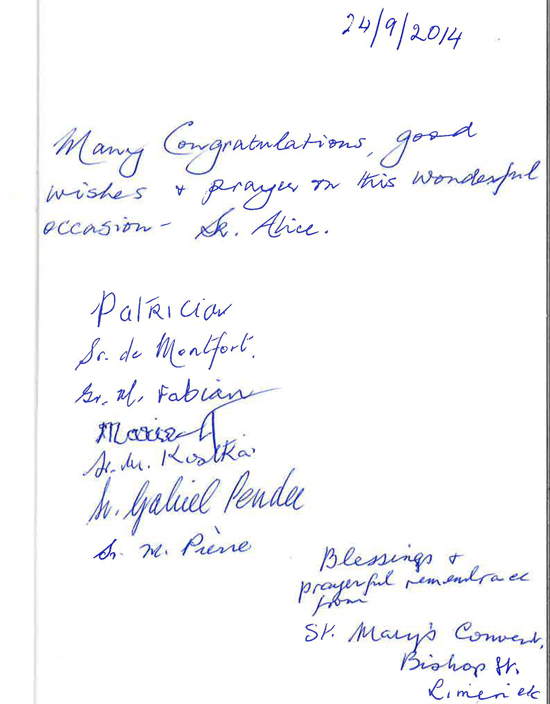 24/9/2014
Many Congratulations, good
wishes + prayers on this wonderful
occasion - Sr. Alice.
Patrician
Sr. de Montfort.
Sr. M. Fabian
Sr. M. Kostka
Sr. Gabriel Pender
Sr. M. Pierre
Blessings +
prayerful remembrance
from
St. Mary's Convent,
Bishop St.
Limerick